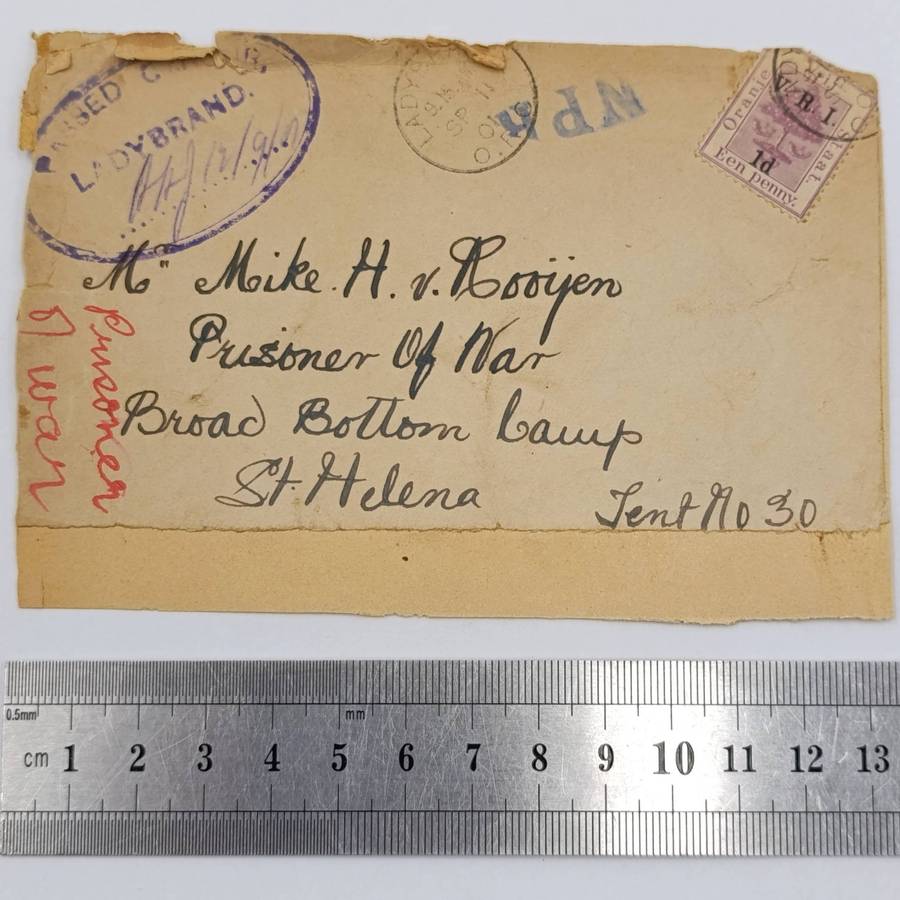 LADYBRAND.
SP 11
01
Oranje
Staat.
V. R. I.
1d
Een penny.
Mr Mike. H. v. Rooijen
Prisoner Of War
Broad Bottom Camp
St. Helena
Tent No 30
Prisoner
of war
0.5mm
mm
cm 1 2 3 4 5 6 7 8 9 10 11 12 13